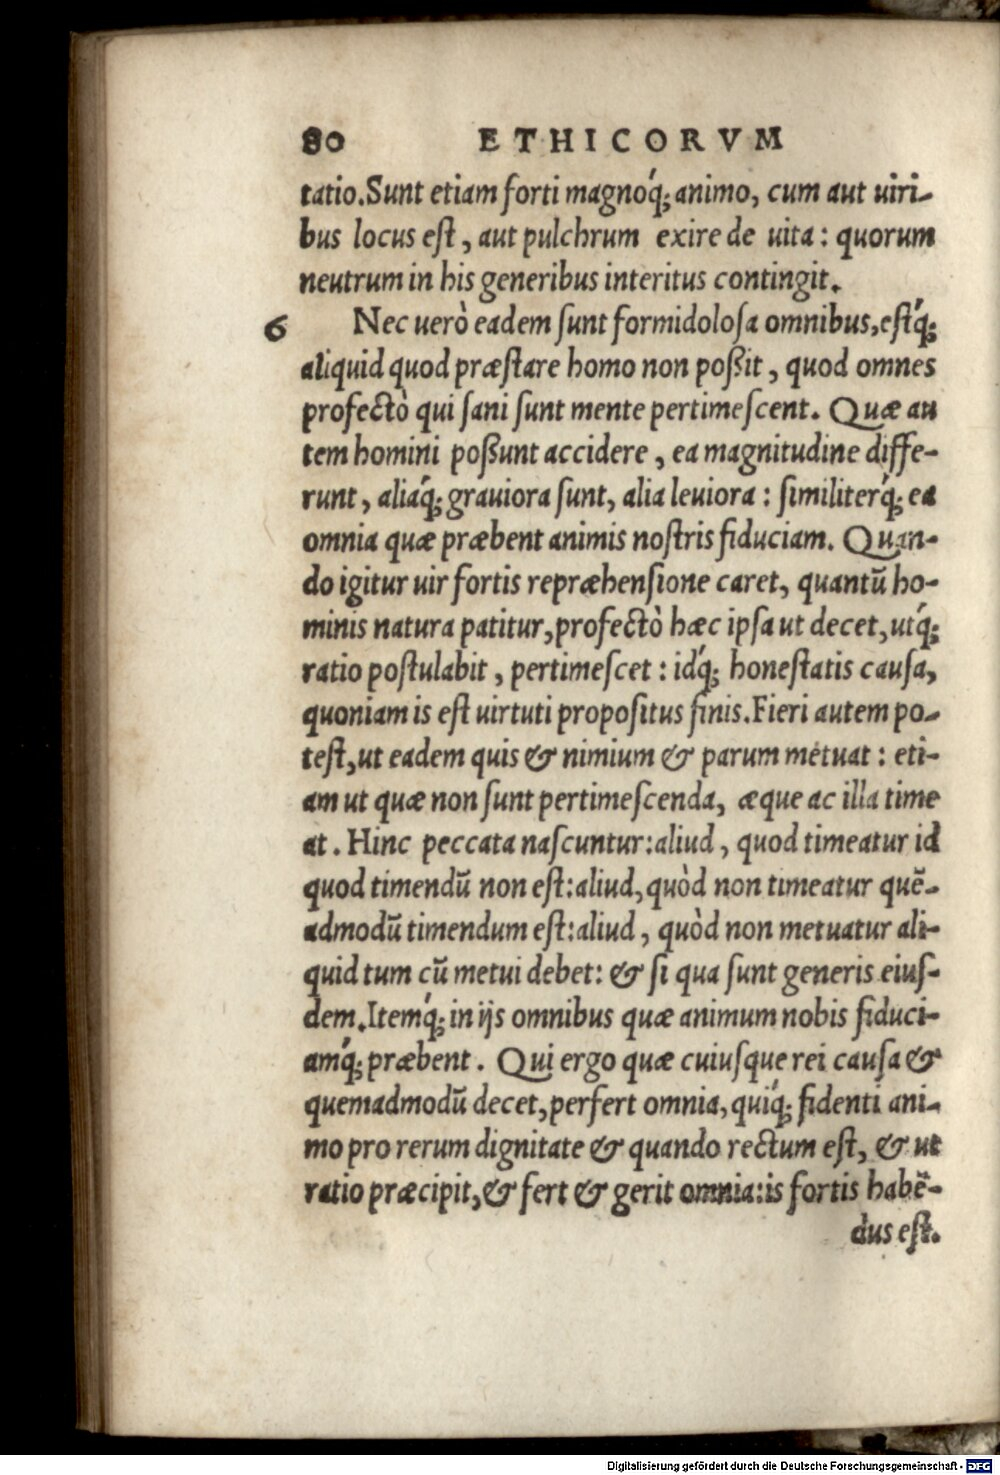 80 ETHICORVM
tatio. Sunt etiam forti magnoq́; animo, cum aut uiri-
bus locus eſt, aut pulchrum exire de uita: quorum
neutrum in his generibus interitus contingit.
6 Nec uerò eadem ſunt formidoloſa omnibus, eſtq́;
aliquid quod præſtare homo non poßit, quod omnes
profectò qui ſani ſunt mente pertimeſcent. Quæ au
tem homini poßunt accidere, ea magnitudine diffe-
runt, aliaq́; grauiora ſunt, alia leuiora: ſimiliterq́; ea
omnia quæ præbent animis noſtris fiduciam. Quan-
do igitur uir fortis repræhenſione caret, quantū ho-
minis natura patitur, profectò hæc ipſa ut decet, utq́;
ratio poſtulabit, pertimeſcet: idq́; honeſtatis cauſa,
quoniam is eſt uirtuti propoſitus finis. Fieri autem po-
teſt, ut eadem quis & nimium & parum metuat: eti-
am ut quæ non ſunt pertimeſcenda, æque ac illa time
at. Hinc peccata naſcuntur: aliud, quod timeatur id
quod timendū non eſt: aliud, quòd non timeatur quē-
admodū timendum eſt: aliud, quòd non metuatur ali-
quid tum cū metui debet: & ſi qua ſunt generis eiuſ-
dem. Itemq́; in ijs omnibus quæ animum nobis fiduci-
amq́; præbent. Qui ergo quæ cuiuſque rei cauſa &
quemadmodū decet, perfert omnia, quiq́; fidenti ani-
mo pro rerum dignitate & quando rectum eſt, & ut
ratio præcipit, & fert & gerit omnia: is fortis habē-
dus eſt.
Digitalisierung gefördert durch die Deutsche Forschungsgemeinschaft - DFG